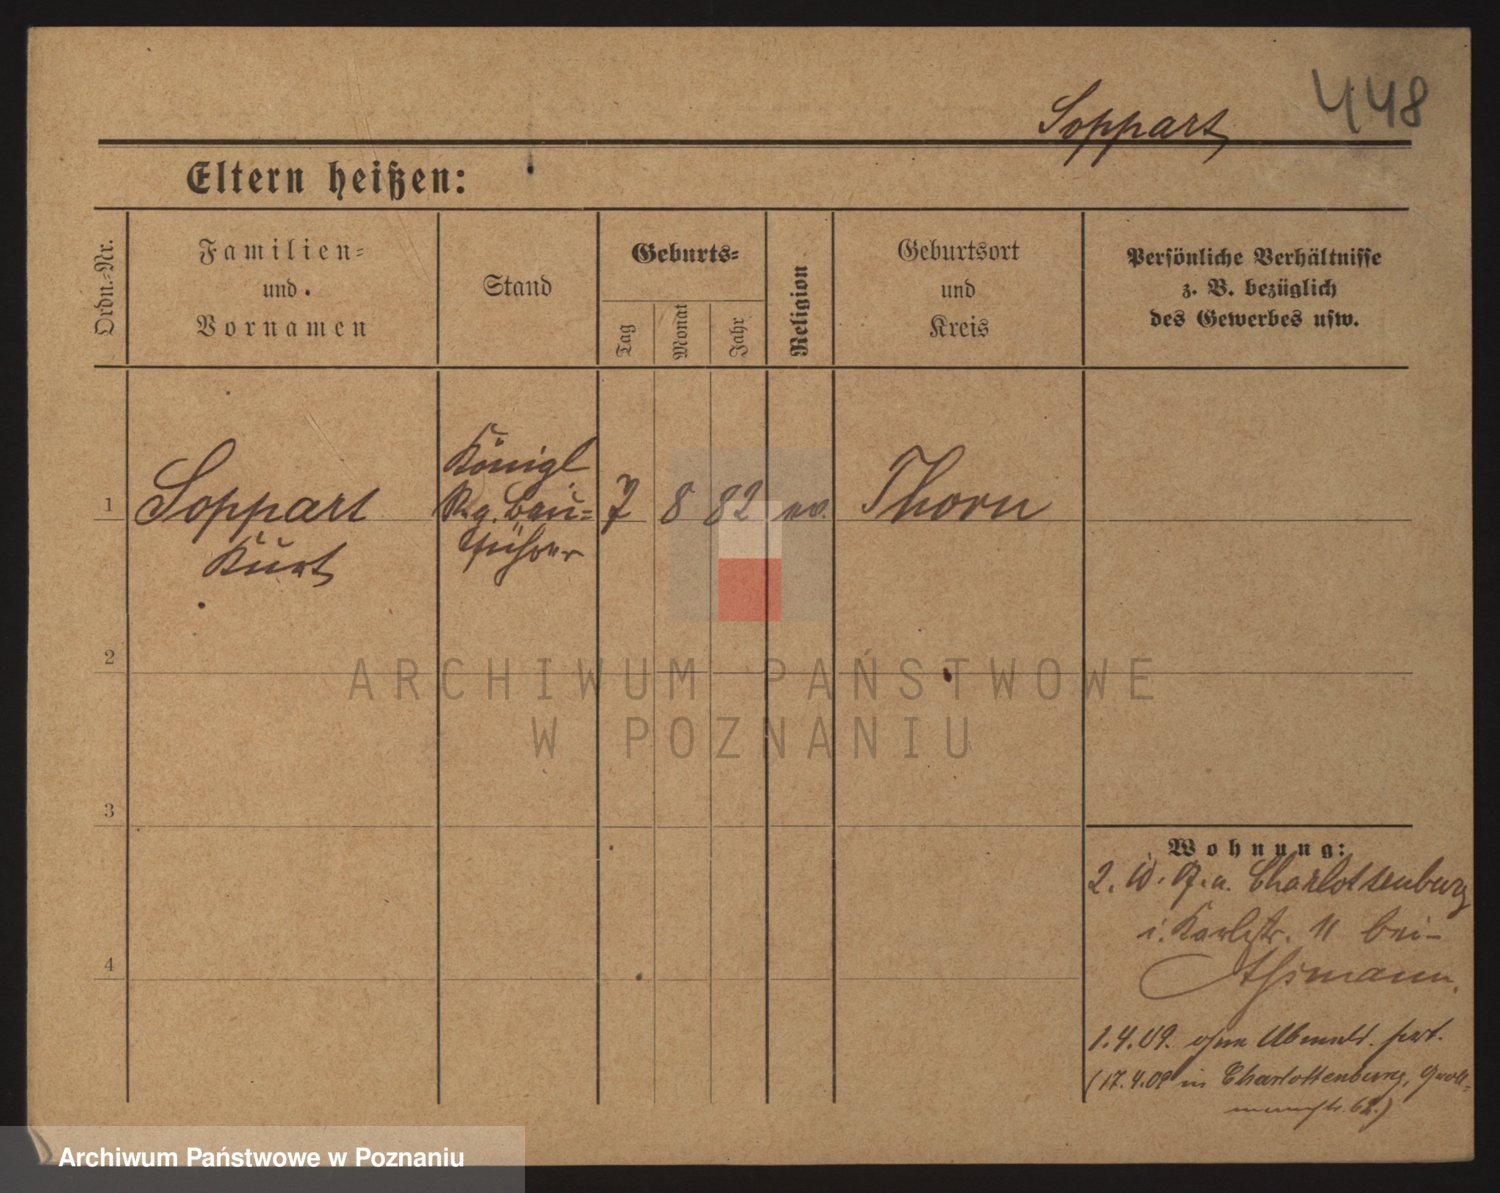 Soppart
448
Eltern heißen:
Ordn.-Nr.
Familien-
und
Vornamen
Stand
Geburts-
Tag
Monat
Jahr
Religion
Geburtsort
und
Kreis
Persönliche Verhältnisse
z. B. bezüglich
des Gewerbes usw.
1
Soppart
Kurt
Königl
Rg. Bau-
führer
7 8 82 ev. Thorn
2
3
4
ARCHIWUM PAŃSTWOWE
W POZNANIU
Wohnung:
2. Charlottenburg
i. Karlstr. 11 bei
Assmann.
1.4.09. ohne Abmeld. fort.
(17.4.09 in Charlottenburg, Groll-
mannstr. 62.)
Archiwum Państwowe w Poznaniu